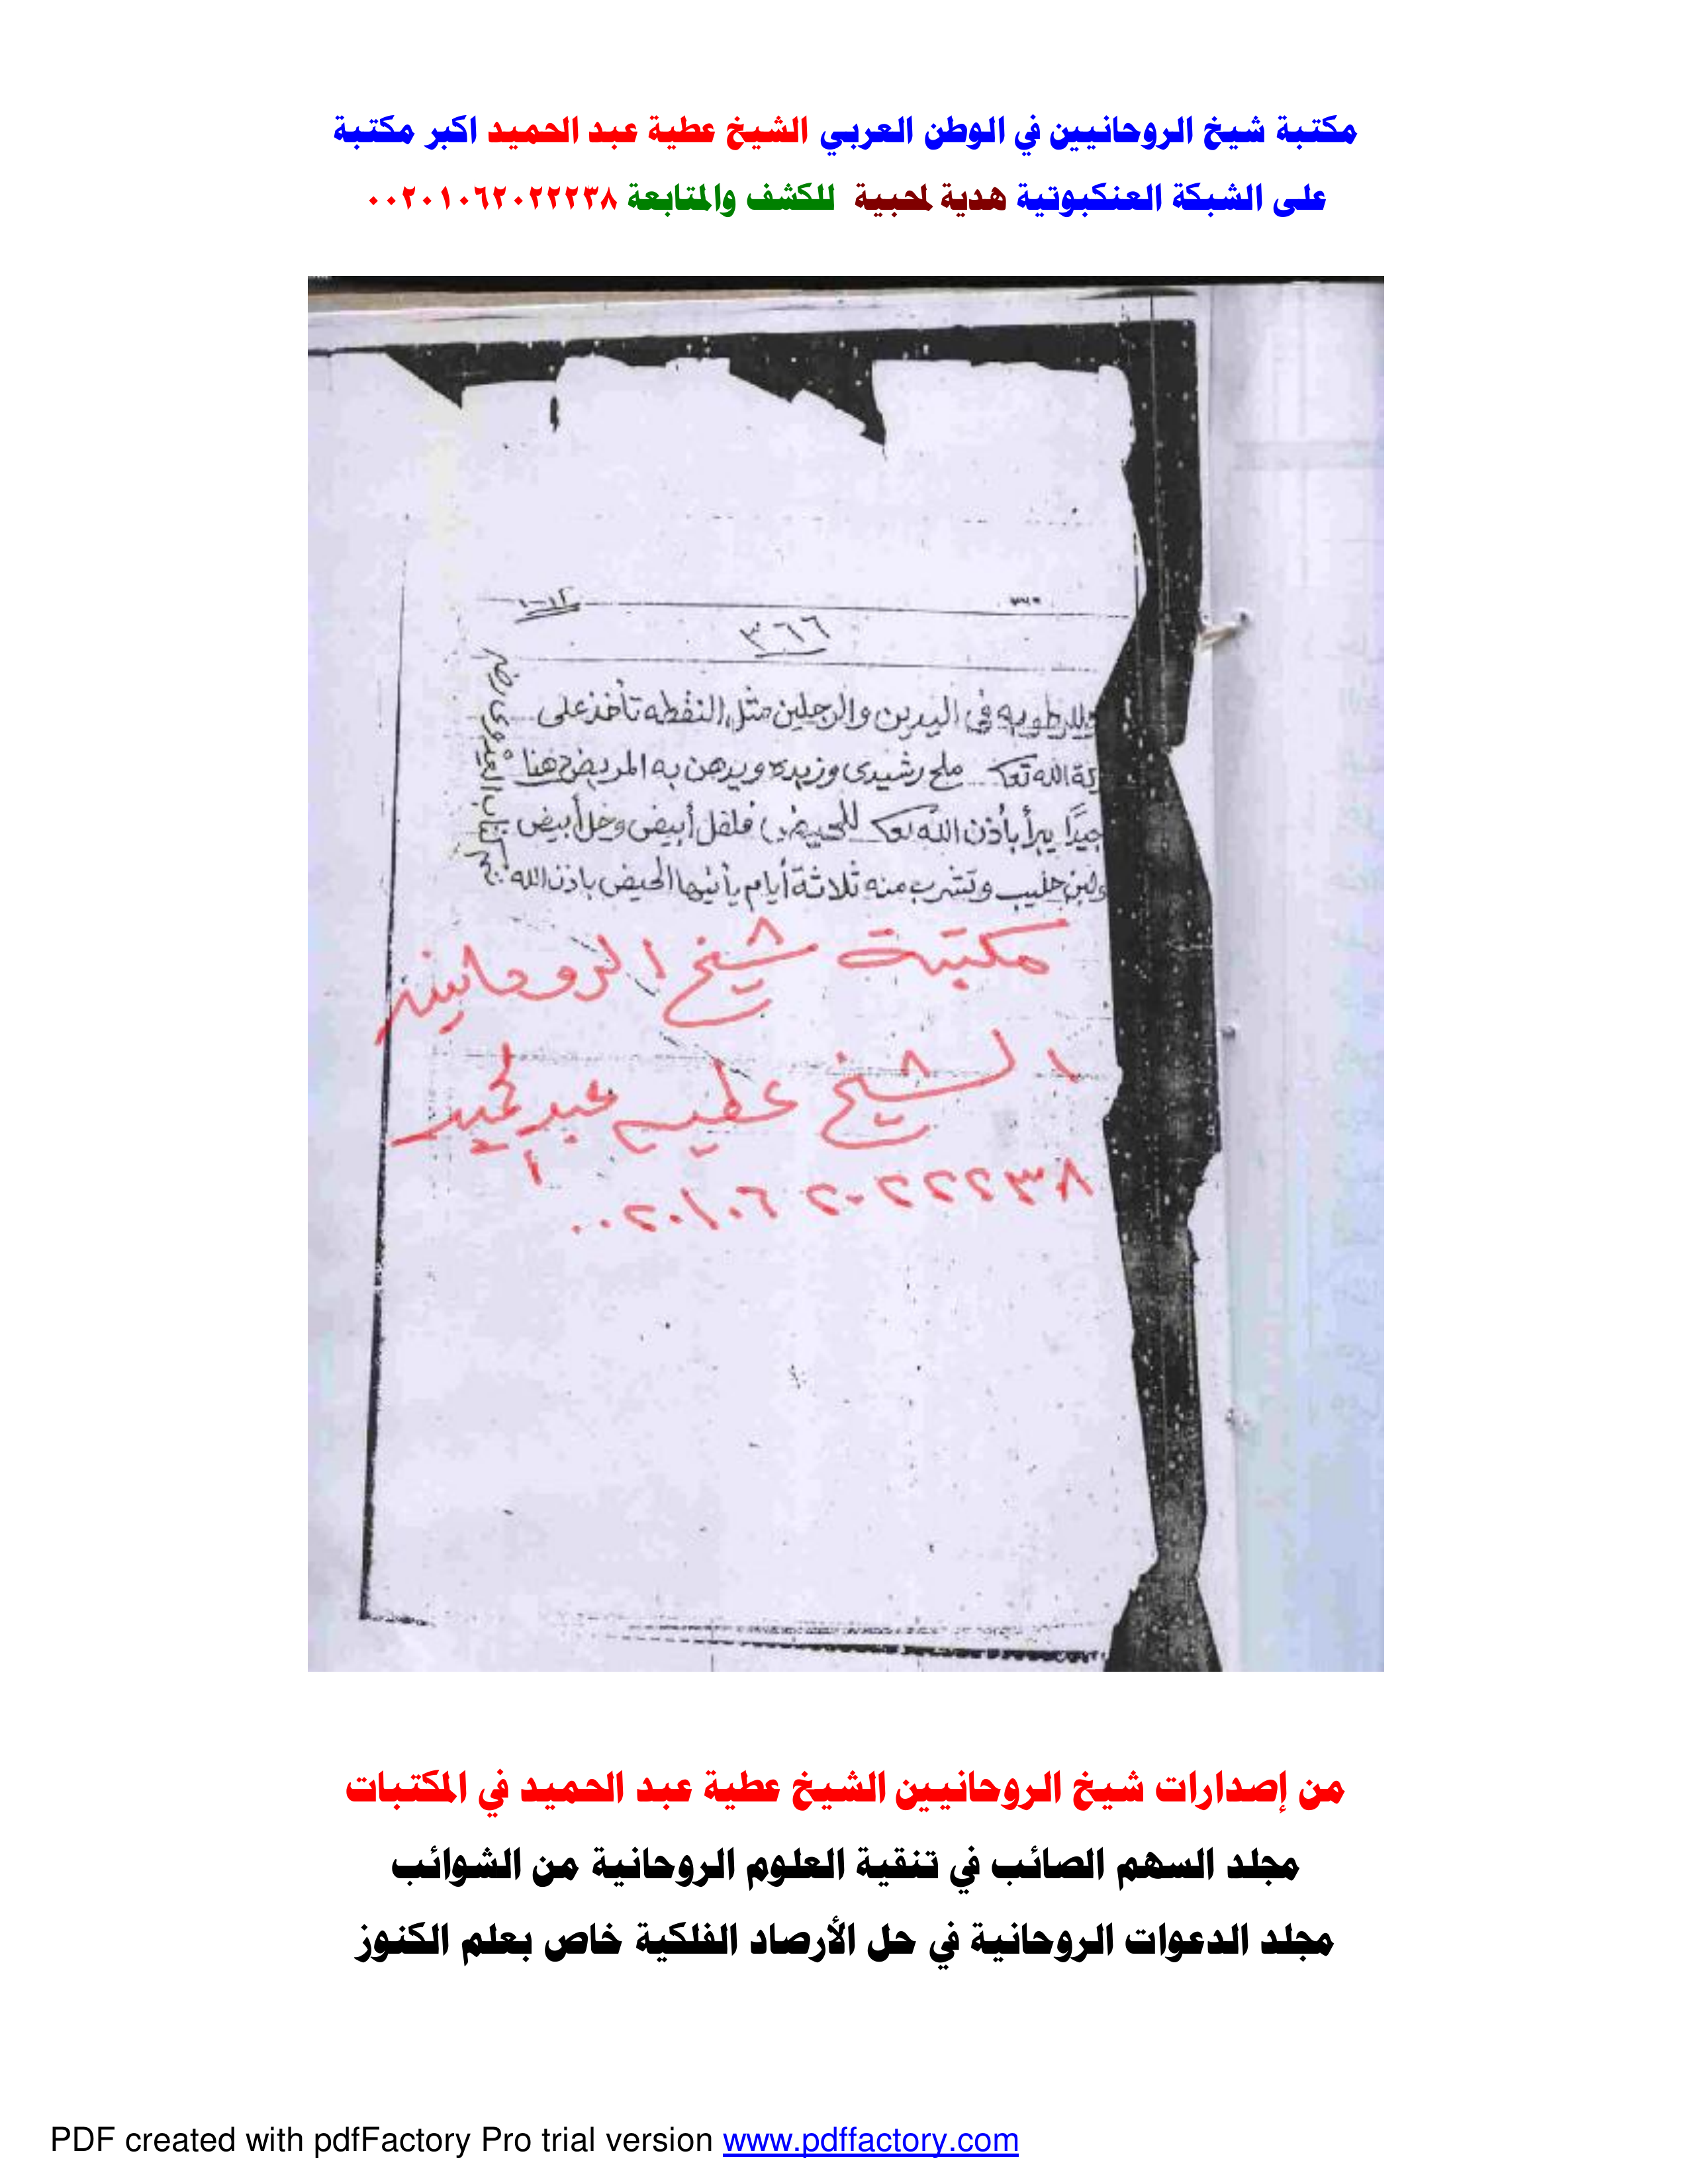 مكتبة شيخ الروحانيين في الوطن العربي الشيخ عطية عبد الحميد اكبر مكتبة
على الشبكة العنكبوتية هدية لمحبية للكشف والمتابعة ٠٠٢٠١٠٦٢٠٢٢٢٣٨
٣٦٦
وللرطوبه في اليدين والرجلين مثل النقطه تأخذ على
بركة الله تعالى ملح رشيدى وزبده ويدهن به المريض دهنا
جيدًا يبرأ بأذن الله تعالى للحيض فلفل أبيض وخل أبيض
ولبن حليب وتشرب منه ثلاثة أيام يأتيها الحيض باذن الله
مكتبة شيخ الروحانيين
الشيخ عطيه عبد الحميد
٠٠٢٠١٠٦٢٠٢٢٢٣٨
من إصدارات شيخ الروحانيين الشيخ عطية عبد الحميد في المكتبات
مجلد السهم الصائب في تنقية العلوم الروحانية من الشوائب
مجلد الدعوات الروحانية في حل الأرصاد الفلكية خاص بعلم الكنوز
PDF created with pdfFactory Pro trial version www.pdffactory.com